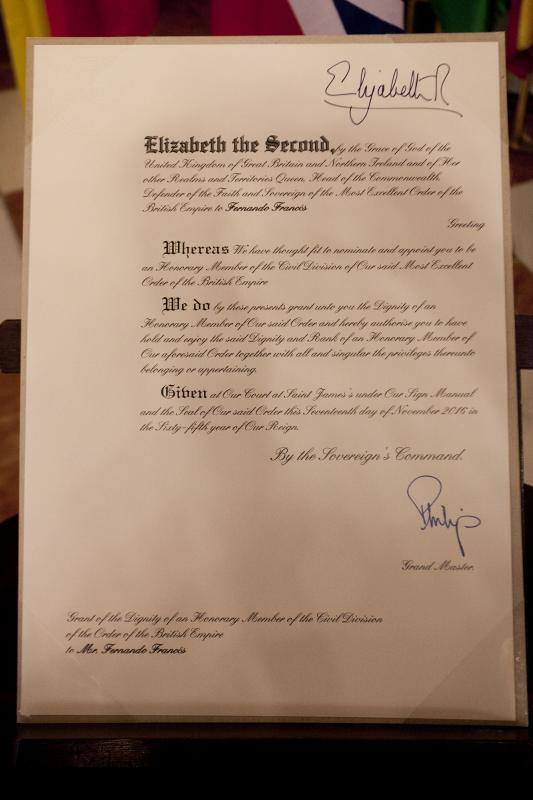 Elizabeth R
Elizabeth the Second, by the Grace of God of the
United Kingdom of Great Britain and Northern Ireland and of Her
other Realms and Territories Queen, Head of the Commonwealth,
Defender of the Faith and Sovereign of the Most Excellent Order of the
British Empire to Fernando Francés
Greeting
Whereas We have thought fit to nominate and appoint you to be
an Honorary Member of the Civil Division of Our said Most Excellent
Order of the British Empire
We do by these presents grant unto you the Dignity of an
Honorary Member of Our said Order and hereby authorise you to have
hold and enjoy the said Dignity and Rank of an Honorary Member of
Our aforesaid Order together with all and singular the privileges thereunto
belonging or appertaining.
Given at Our Court at Saint James's under Our Sign Manual
and the Seal of Our said Order this Seventeenth day of November 2016 in
the Sixty-fifth year of Our Reign.
By the Sovereign's Command.
Philip
Grand Master.
Grant of the Dignity of an Honorary Member of the Civil Division
of the Order of the British Empire
to Mr. Fernando Francés